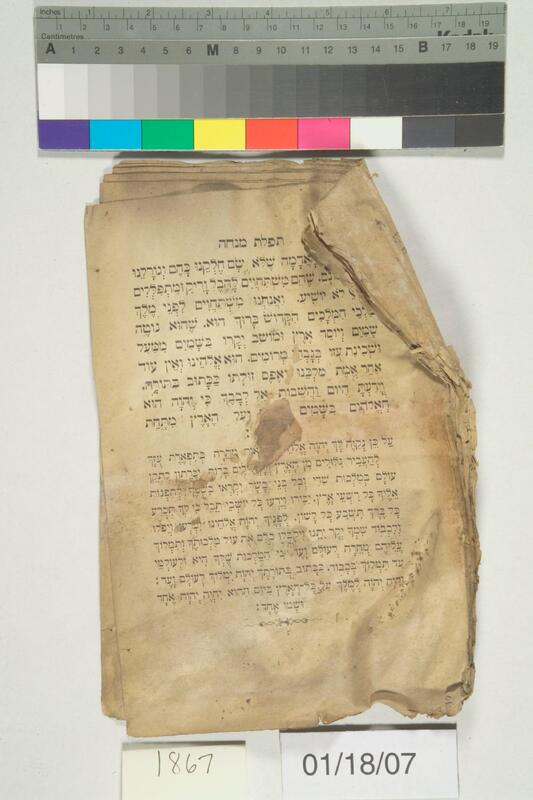 inches 1 2 3 4 5 6 7
Centimetres 1 2 3 4 5 6 7 8 9 10 11 12 13 14 15 16 17 18 19
Kodak
A 1 2 3 4 5 6 M 8 9 10 11 12 13 14 15 B 17 18 19
תפלת מנחה
שֶׁלֹּא שָׂם חֶלְקֵנוּ כָּהֶם וְגוֹרָלֵנוּ
שֶׁהֵם מִשְׁתַּחֲוִים לְהֶבֶל וָרִיק וּמִתְפַּלְלִים
לֹא יוֹשִׁיעַ. וַאֲנַחְנוּ מִשְׁתַּחֲוִים לִפְנֵי מֶלֶךְ
מַלְכֵי הַמְּלָכִים הַקָּדוֹשׁ בָּרוּךְ הוּא. שֶׁהוּא נוֹטֶה
שָׁמַיִם וְיוֹסֵד אָרֶץ וּמוֹשַׁב יְקָרוֹ בַּשָּׁמַיִם מִמַּעַל
וּשְׁכִינַת עֻזּוֹ בְּגָבְהֵי מְרוֹמִים. הוּא אֱלֹהֵינוּ וְאֵין עוֹד
אַחֵר אֱמֶת מַלְכֵּנוּ וְאֶפֶס זוּלָתוֹ כַּכָּתוּב בַּתּוֹרָה.
וְיָדַעְתָּ הַיּוֹם וַהֲשֵׁבוֹתָ אֶל לְבָבֶךָ כִּי יְהוָה הוּא
הָאֱלֹהִים בַּשָּׁמַיִם וְעַל הָאָרֶץ מִתַּחַת
עַל כֵּן נְקַוֶּה לְךָ יְהוָה מְהֵרָה בְּתִפְאֶרֶת עֻזֶּךָ
לְהַעֲבִיר גִּלּוּלִים מִן הָאָרֶץ לְתַקֵּן
עוֹלָם בְּמַלְכוּת שַׁדַּי וְכָל בְּנֵי בָשָׂר יִקְרְאוּ בִשְׁמֶךָ לְהַפְנוֹת
אֵלֶיךָ כָּל רִשְׁעֵי אָרֶץ. יַכִּירוּ וְיֵדְעוּ כָּל יוֹשְׁבֵי תֵבֵל כִּי לְךָ תִּכְרַע
כָּל בֶּרֶךְ תִּשָּׁבַע כָּל לָשׁוֹן. לְפָנֶיךָ יְהוָה אֱלֹהֵינוּ יִכְרְעוּ וְיִפֹּלוּ
וְלִכְבוֹד שִׁמְךָ יְקָר יִתֵּנוּ וִיקַבְּלוּ כֻלָּם אֶת עוֹל מַלְכוּתֶךָ וְתִמְלוֹךְ
עֲלֵיהֶם מְהֵרָה לְעוֹלָם וָעֶד. כִּי הַמַּלְכוּת שֶׁלְּךָ הִיא וּלְעוֹלְמֵי
עַד תִּמְלוֹךְ בְּכָבוֹד. כַּכָּתוּב בְּתוֹרָתֶךָ יְהוָה יִמְלוֹךְ לְעֹלָם וָעֶד:
וְהָיָה יְהוָה לְמֶלֶךְ עַל כָּל הָאָרֶץ בַּיּוֹם הַהוּא יִהְיֶה יְהוָה אֶחָד
וּשְׁמוֹ אֶחָד:
1867
01/18/07